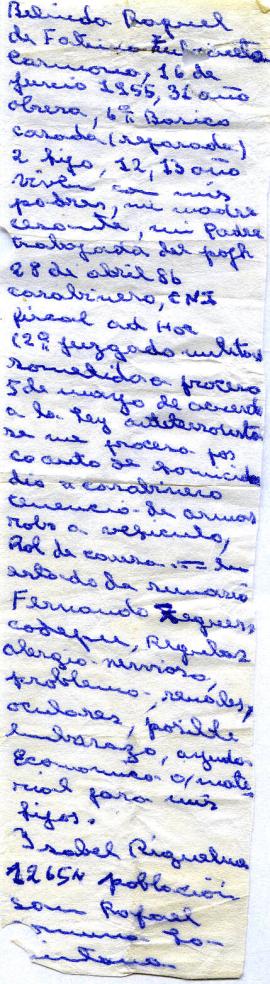 Belinda Raquel
de Fatima Zubicueta
Carmona, 16 de
Junio 1955, 31 año
obrera, 6º Basico
casada (separada)
2 hijo, 12, 13 año
viven con mis
padres, mi madre
cesante, mi Padre
trabajada del pojh
28 de abril 86
carabinero, CNI
fiscal ad Hoc
(2º juzgado militar
sometida a proceso
5 de mayo de acuerdo
a la ley antiterrorista
se me procesa por
co auto de homici
dio a carabinero
tenencia de armas
robo a vehiculo,
Rol de causa — En
estado de sumario
Fernando Zegers,
codepu, Regular
alergia nerviosa,
problema renales,
oculares, posible
embarazo, ayuda
Economica o/mate
rial para mis
hijos.
Isabel Riquelme
1265 N población
san Rafael
comuna La
intana